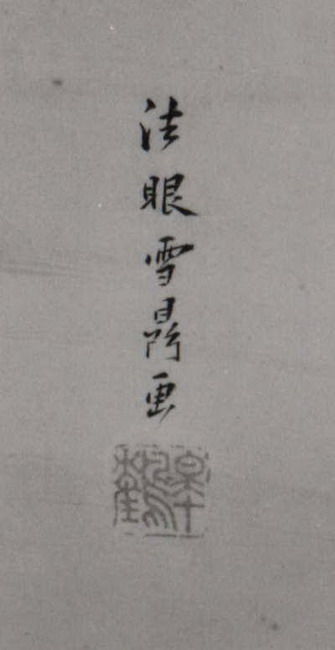 法眼雪鼎画